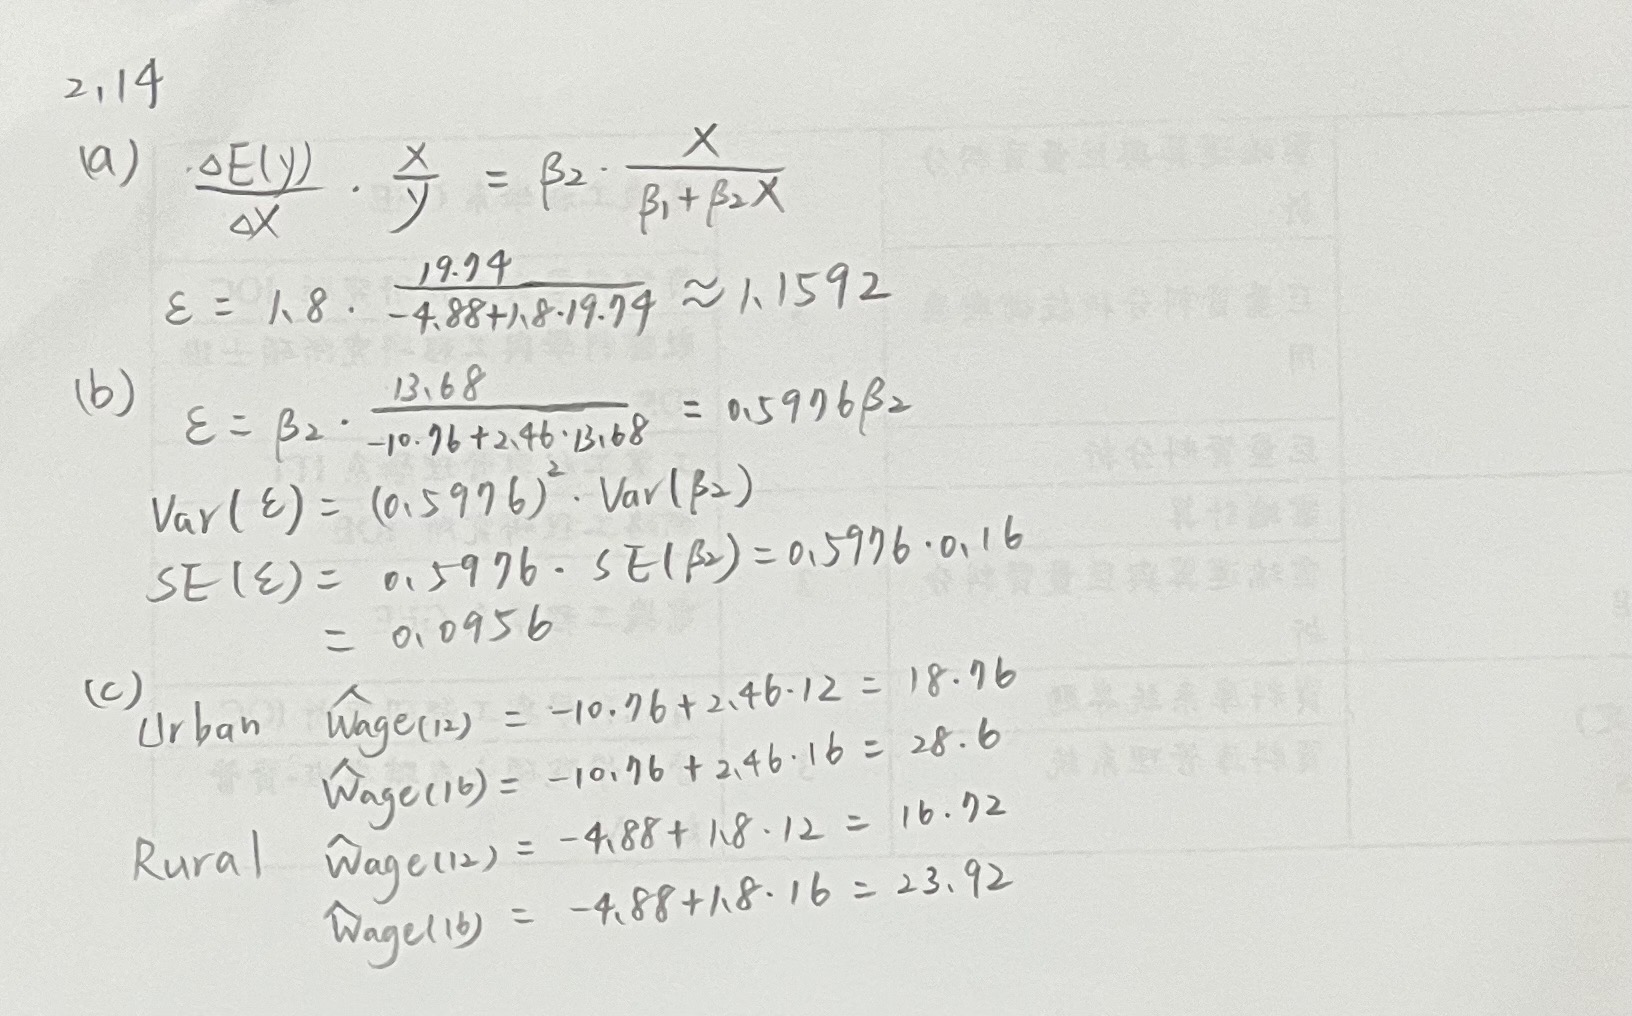 2.14
(a) ΔE(y)/ΔX · x/y = β2 · X/(β1+β2X)
ε = 1.8 · 19.74/(-4.88+1.8·19.74) ≈ 1.1592
(b) ε = β2 · 13.68/(-10.76+2.46·13.68) = 0.5976β2
Var(ε) = (0.5976)² · Var(β2)
SE(ε) = 0.5976 · SE(β2) = 0.5976 · 0.16
= 0.0956
(c)
Urban Ŵage(12) = -10.76 + 2.46·12 = 18.76
Ŵage(16) = -10.76 + 2.46·16 = 28.6
Rural Ŵage(12) = -4.88 + 1.8·12 = 16.72
Ŵage(16) = -4.88 + 1.8·16 = 23.92